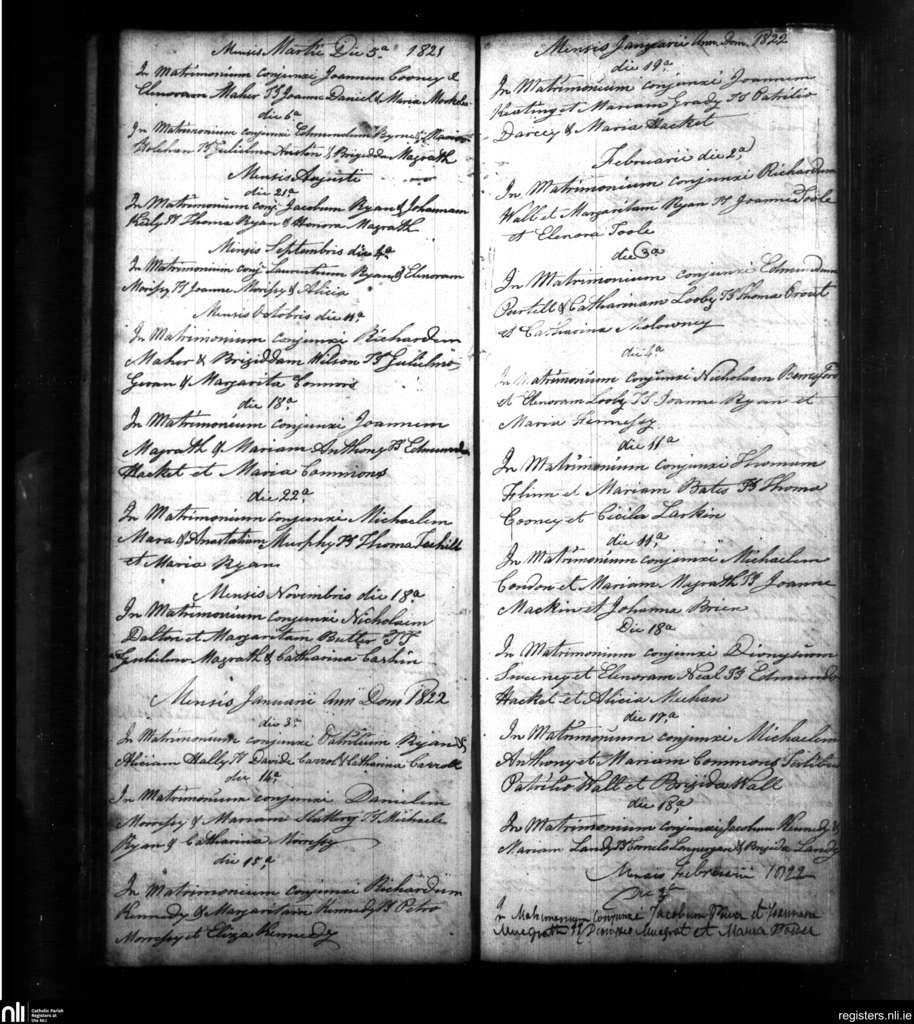 Mensis Martii Die 5a 1821
In Matrimonium conjunxi Joannem Cooney &
Elenoram Maher TT Joanne Daniel & Maria
die 6a
In Matrimonium conjunxi Edmundum Byrne &
TT Gulielmo & Brigidda Magrath
Mensis Augusti
die 21a
In Matrimonium conj Jacobum Ryan & Johannam
Kiely TT Thoma Ryan & Honora Magrath
Mensis Septembris die 4a
In Matrimonium conj Laurentium Ryan & Elenoram
Morissy TT Joanne Morissy & Alicia
Mensis Octobris die 11a
In Matrimonium conjunxi Richardum
Maher & Brigiddam Wilson TT Gulielmo
& Margarita Connors
die 18a
In Matrimonium conjunxi Joannem
Magrath & Mariam Anthony TT Edmundo
Hacket et Maria Commons
die 22a
In Matrimonium conjunxi Michaelem
Mara & Anastatiam Murphy TT Thoma
et Maria Ryan
Mensis Novembris die 18a
In Matrimonium conjunxi Nicholaum
Dalton et Margaritam Butler TT
Gulielmo Magrath & Catharina
Mensis Januarii Ann Dom 1822
die 3a
In Matrimonium conjunxi Patritium Ryan &
Aliciam Hally TT Davide Carrol & Catharina Carroll
die 14a
In Matrimonium conjunxi Danielem
Morrissy & Mariam Slattery TT Michaele
Ryan & Catharina Morrissy
die 15a
In Matrimonium conjunxi Richardum
Kennedy & Margaritam Kennedy TT Petro
Morrissy et Eliza Kennedy
Mensis Januarii Ann Dom 1822
die 19a
In Matrimonium conjunxi Joannem
Keating et Mariam Grady TT Patritio
Darcey & Maria Hacket
Februarii die 2a
In Matrimonium conjunxi Richardum
Wall et Margaritam Ryan TT Joanne Toole
et Elenora Toole
die 3a
In Matrimonium conjunxi Edmundum
Purtill & Catharinam Looby TT Thoma Prout
et Catharina Molowney
die 4a
In Matrimonium conjunxi Nicholaum
et Elenoram Looby TT Joanne Ryan et
Maria Hennessy
die 11a
In Matrimonium conjunxi Thomam
et Mariam Bates TT Thoma
Cooney et Cicila Larkin
die 11a
In Matrimonium conjunxi Michaelem
Condon et Mariam Magrath TT Joanne
Mackin et Johanna Brien
Die 18a
In Matrimonium conjunxi Dionysium
Sweeney et Elenoram Neal TT Edmundo
Hacket et Alicia Mechan
die 17a
In Matrimonium conjunxi Michaelem
Anthony et Mariam Commons Testibus
Patritio Wall et Brigida Wall
die 18a
In Matrimonium conjunxi Jacobum Kennedy &
Mariam Landy TT Cornelo Lonnergan & Brigida Landy
Mensis Februarii 1822
Die
In Matrimonium conjunxi Jacobum et Joannam
Muegrath TT Dionisio Muegrat et Maria
nli
Catholic Parish
Registers at
the NLI
registers.nli.ie